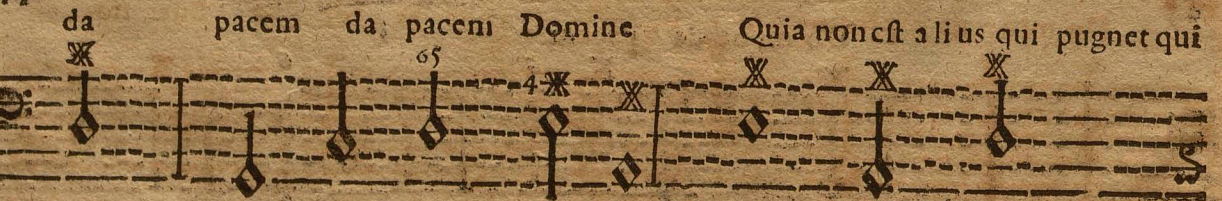 da pacem da pacem Domine Quia non est alius qui pugnet qui
65
4